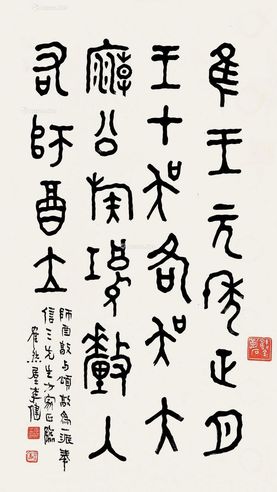 隹王元年正月
王才吳各吳大
廟公族釐入
右師酉立
師酉敦与頌敦為一派奉
信三先生方家正臨
李健